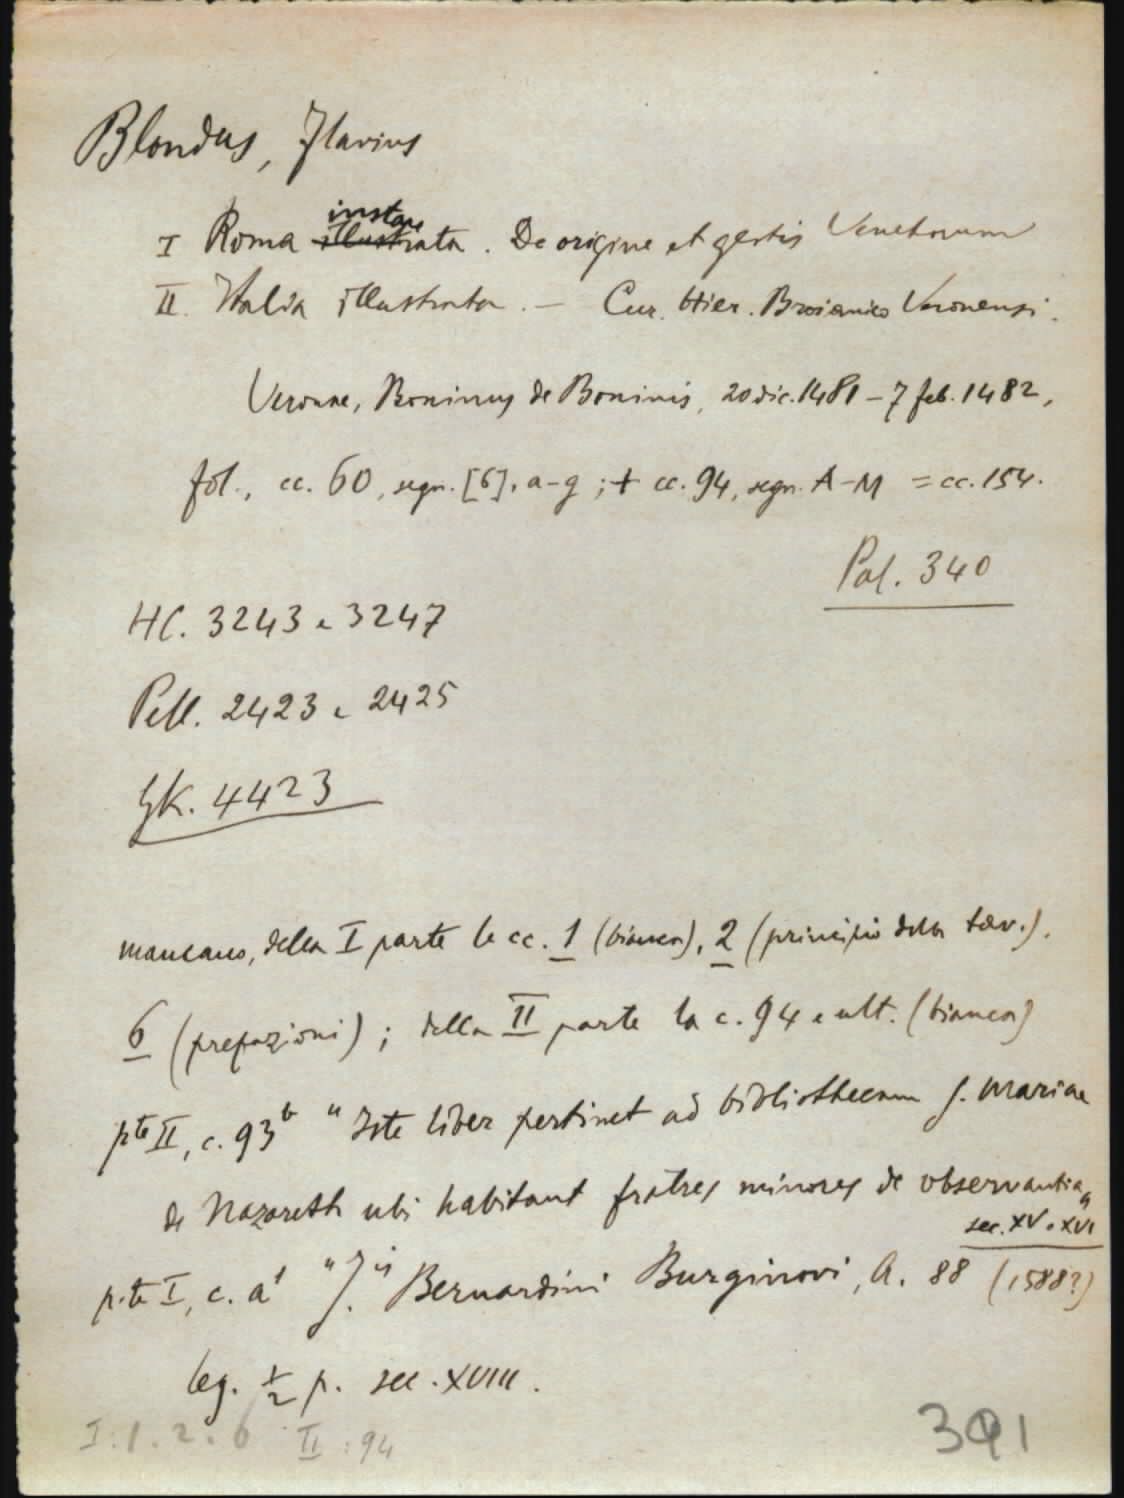 Blondus, Flavius
I Roma instaurata. De origine et gestis Venetorum
II. Italia illustrata. — Cur. Hier. Broianico Veronensi.
Veronae, Boninus de Boninis, 20 dic. 1481 – 7 feb. 1482,
fol., cc. 60, segn. [6], a-g; + cc. 94, segn. A-M = cc. 154.
Pal. 340
HC. 3243 e 3247
Pell. 2423 e 2425
GK. 4423
mancano, della I parte le cc. 1 (bianca), 2 (principio della tav.).
6 (prefazioni); della II parte la c. 94 e ult. (bianca)
pte II, c. 93b "Iste liber pertinet ad bibliothecam S. Mariae
de Nazareth ubi habitant fratres minores de observantia"
sec. XV o XVI
p.te I, c. a1 Bernardini Burginovi, A. 88 (1588?)
leg. 1/2 p. sec. XVIII.
I: 1. 2. 6 II: 94
391